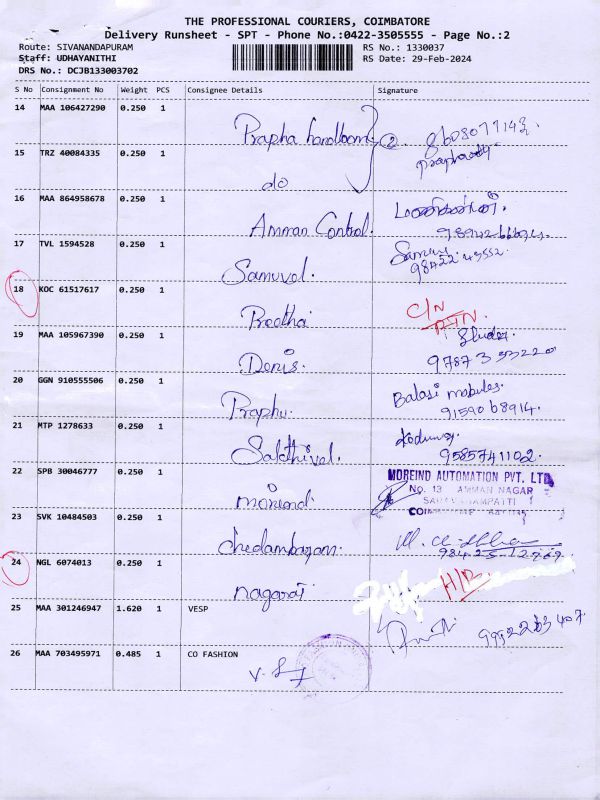 THE PROFESSIONAL COURIERS, COIMBATORE
Delivery Runsheet - SPT - Phone No.:0422-3505555 - Page No.:2
Route: SIVANANDAPURAM RS No.: 1330037
Staff: UDHAYANITHI RS Date: 29-Feb-2024
DRS No.: DCJB133003702
S No Consignment No Weight PCS Consignee Details Signature
14 MAA 106427290 0.250 1
Prapha handloom 2
15 TRZ 40084335 0.250 1
do
16 MAA 864958678 0.250 1
Amman Control.
17 TVL 1594528 0.250 1
Samuvol.
18 KOC 61517617 0.250 1
Preetha C/N RTN
19 MAA 105967390 0.250 1
Denis.
20 GGN 910555506 0.250 1
Praphu Balasi mobiles.
9159068914.
21 MTP 1278633 0.250 1
Sakthivel. 9585741102.
22 SPB 30046777 0.250 1 MOREIND AUTOMATION PVT. LTD
NO. 13 AMMAN NAGAR
morend
23 SVK 10484503 0.250 1
Chedambaram.
24 NGL 6074013 0.250 1
nagaraj
25 MAA 301246947 1.620 1 VESP
26 MAA 703495971 0.485 1 CO FASHION